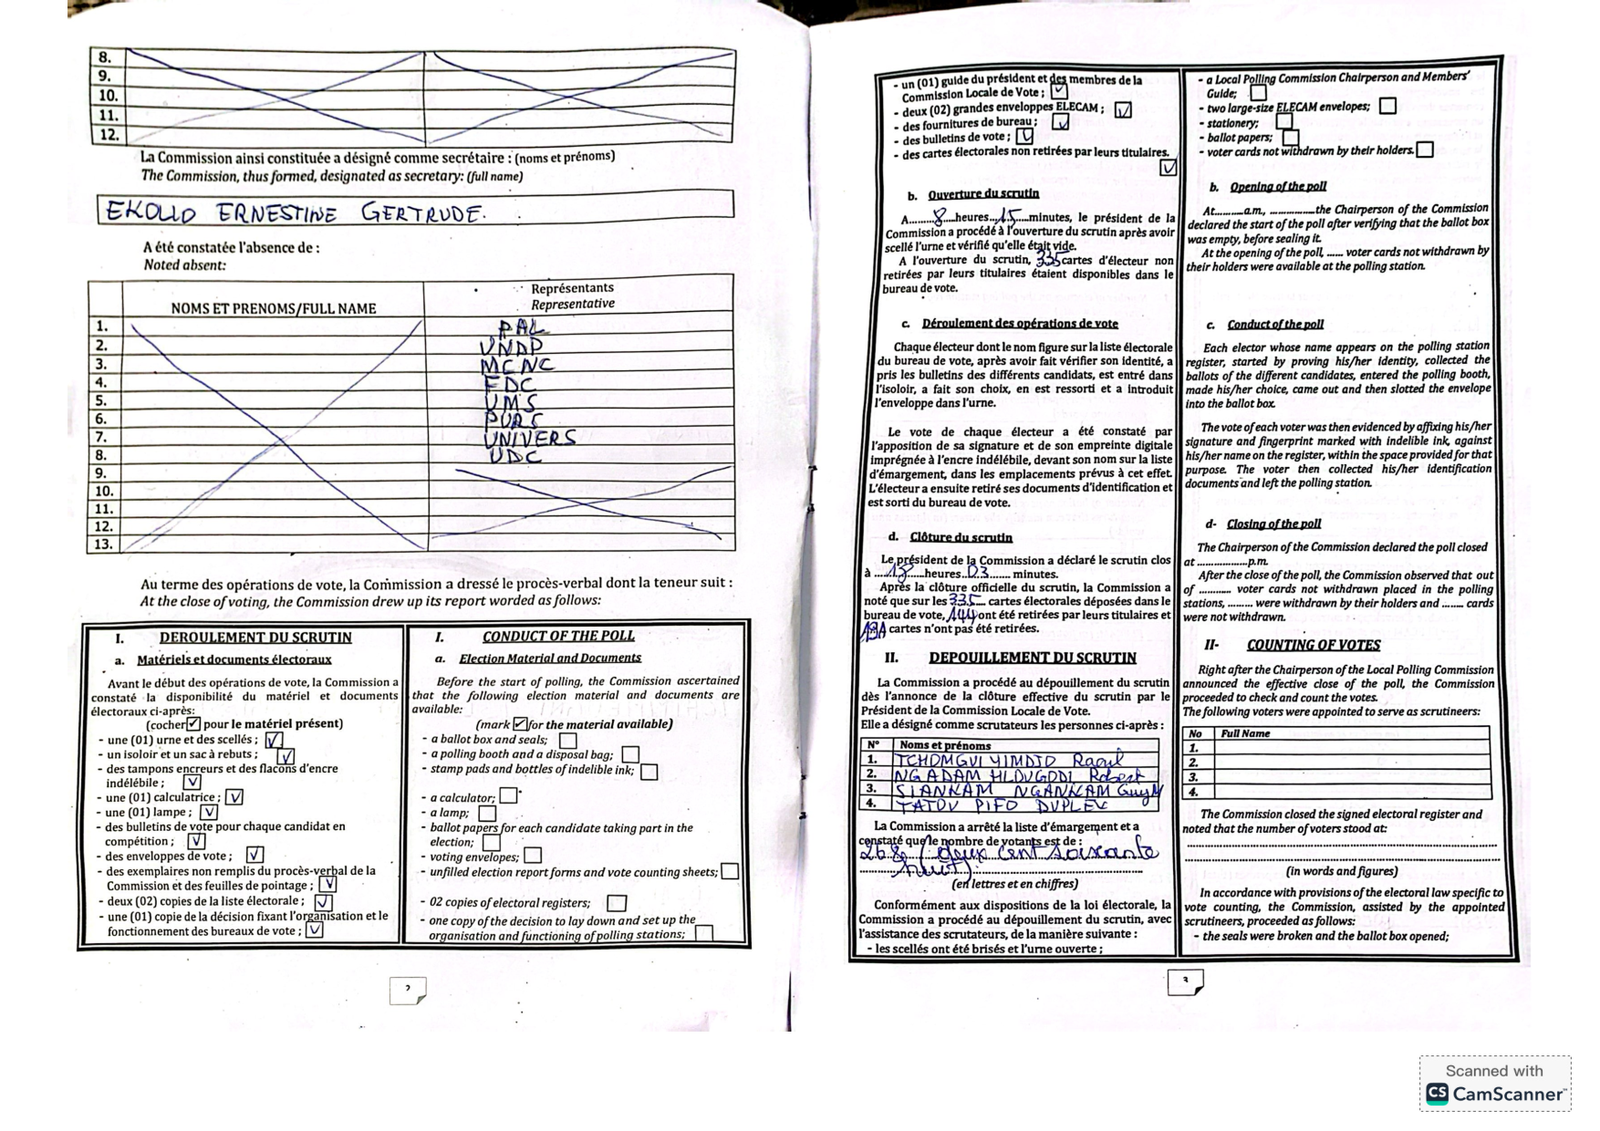 8.
9.
10.
11.
12.
La Commission ainsi constituée a désigné comme secrétaire : (noms et prénoms)
The Commission, thus formed, designated as secretary: (full name)
EKOLLO ERNESTINE GERTRUDE.
A été constatée l'absence de :
Noted absent:
NOMS ET PRENOMS/FULL NAME
Représentants
Representative
1. PAL
2. UNDP
3. MCNC
4. FDC
5. UMS
6. PURS
7. UNIVERS
8. UDC
9.
10.
11.
12.
13.
Au terme des opérations de vote, la Commission a dressé le procès-verbal dont la teneur suit :
At the close of voting, the Commission drew up its report worded as follows:
I. DEROULEMENT DU SCRUTIN
a. Matériels et documents électoraux
Avant le début des opérations de vote, la Commission a
constaté la disponibilité du matériel et documents
électoraux ci-après:
(cocher ☑ pour le matériel présent)
- une (01) urne et des scellés ;
- un isoloir et un sac à rebuts ;
- des tampons encreurs et des flacons d'encre
indélébile ;
- une (01) calculatrice ;
- une (01) lampe ;
- des bulletins de vote pour chaque candidat en
compétition ;
- des enveloppes de vote ;
- des exemplaires non remplis du procès-verbal de la
Commission et des feuilles de pointage ;
- deux (02) copies de la liste électorale ;
- une (01) copie de la décision fixant l'organisation et le
fonctionnement des bureaux de vote ;
I. CONDUCT OF THE POLL
a. Election Material and Documents
Before the start of polling, the Commission ascertained
that the following election material and documents are
available:
(mark ☑ for the material available)
- a ballot box and seals;
- a polling booth and a disposal bag;
- stamp pads and bottles of indelible ink;
- a calculator;
- a lamp;
- ballot papers for each candidate taking part in the
election;
- voting envelopes;
- unfilled election report forms and vote counting sheets;
- 02 copies of electoral registers;
- one copy of the decision to lay down and set up the
organisation and functioning of polling stations;
2
- un (01) guide du président et des membres de la
Commission Locale de Vote ;
- deux (02) grandes enveloppes ELECAM ;
- des fournitures de bureau ;
- des bulletins de vote ;
- des cartes électorales non retirées par leurs titulaires.
b. Ouverture du scrutin
A 8 heures 15 minutes, le président de la
Commission a procédé à l'ouverture du scrutin après avoir
scellé l'urne et vérifié qu'elle était vide.
A l'ouverture du scrutin, 335 cartes d'électeur non
retirées par leurs titulaires étaient disponibles dans le
bureau de vote.
c. Déroulement des opérations de vote
Chaque électeur dont le nom figure sur la liste électorale
du bureau de vote, après avoir fait vérifier son identité, a
pris les bulletins des différents candidats, est entré dans
l'isoloir, a fait son choix, en est ressorti et a introduit
l'enveloppe dans l'urne.
Le vote de chaque électeur a été constaté par
l'apposition de sa signature et de son empreinte digitale
imprégnée à l'encre indélébile, devant son nom sur la liste
d'émargement, dans les emplacements prévus à cet effet.
L'électeur a ensuite retiré ses documents d'identification et
est sorti du bureau de vote.
d. Clôture du scrutin
Le président de la Commission a déclaré le scrutin clos
à 18 heures 03 minutes.
Après la clôture officielle du scrutin, la Commission a
noté que sur les 335 cartes électorales déposées dans le
bureau de vote, 144 ont été retirées par leurs titulaires et
191 cartes n'ont pas été retirées.
II. DEPOUILLEMENT DU SCRUTIN
La Commission a procédé au dépouillement du scrutin
dès l'annonce de la clôture effective du scrutin par le
Président de la Commission Locale de Vote.
Elle a désigné comme scrutateurs les personnes ci-après :
N° Noms et prénoms
1. TCHOMGUI YIMDJO Raoul
2. NGADAM Robert
3. SIANKAM NGANKAM Guy M
4. TATOU PIFO DUPLEX
La Commission a arrêté la liste d'émargement et a
constaté que le nombre de votants est de :
268 (deux cent soixante
huit)
(en lettres et en chiffres)
Conformément aux dispositions de la loi électorale, la
Commission a procédé au dépouillement du scrutin, avec
l'assistance des scrutateurs, de la manière suivante :
- les scellés ont été brisés et l'urne ouverte ;
- a Local Polling Commission Chairperson and Members'
Guide;
- two large-size ELECAM envelopes;
- stationery;
- ballot papers;
- voter cards not withdrawn by their holders.
b. Opening of the poll
At..........a.m., ...............the Chairperson of the Commission
declared the start of the poll after verifying that the ballot box
was empty, before sealing it.
At the opening of the poll, ...... voter cards not withdrawn by
their holders were available at the polling station.
c. Conduct of the poll
Each elector whose name appears on the polling station
register, started by proving his/her identity, collected the
ballots of the different candidates, entered the polling booth,
made his/her choice, came out and then slotted the envelope
into the ballot box.
The vote of each voter was then evidenced by affixing his/her
signature and fingerprint marked with indelible ink, against
his/her name on the register, within the space provided for that
purpose. The voter then collected his/her identification
documents and left the polling station.
d- Closing of the poll
The Chairperson of the Commission declared the poll closed
at .................p.m.
After the close of the poll, the Commission observed that out
of ........... voter cards not withdrawn placed in the polling
stations, ......... were withdrawn by their holders and ........ cards
were not withdrawn.
II- COUNTING OF VOTES
Right after the Chairperson of the Local Polling Commission
announced the effective close of the poll, the Commission
proceeded to check and count the votes.
The following voters were appointed to serve as scrutineers:
No Full Name
1.
2.
3.
4.
The Commission closed the signed electoral register and
noted that the number of voters stood at:
(in words and figures)
In accordance with provisions of the electoral law specific to
vote counting, the Commission, assisted by the appointed
scrutineers, proceeded as follows:
- the seals were broken and the ballot box opened;
3
Scanned with
CS CamScanner